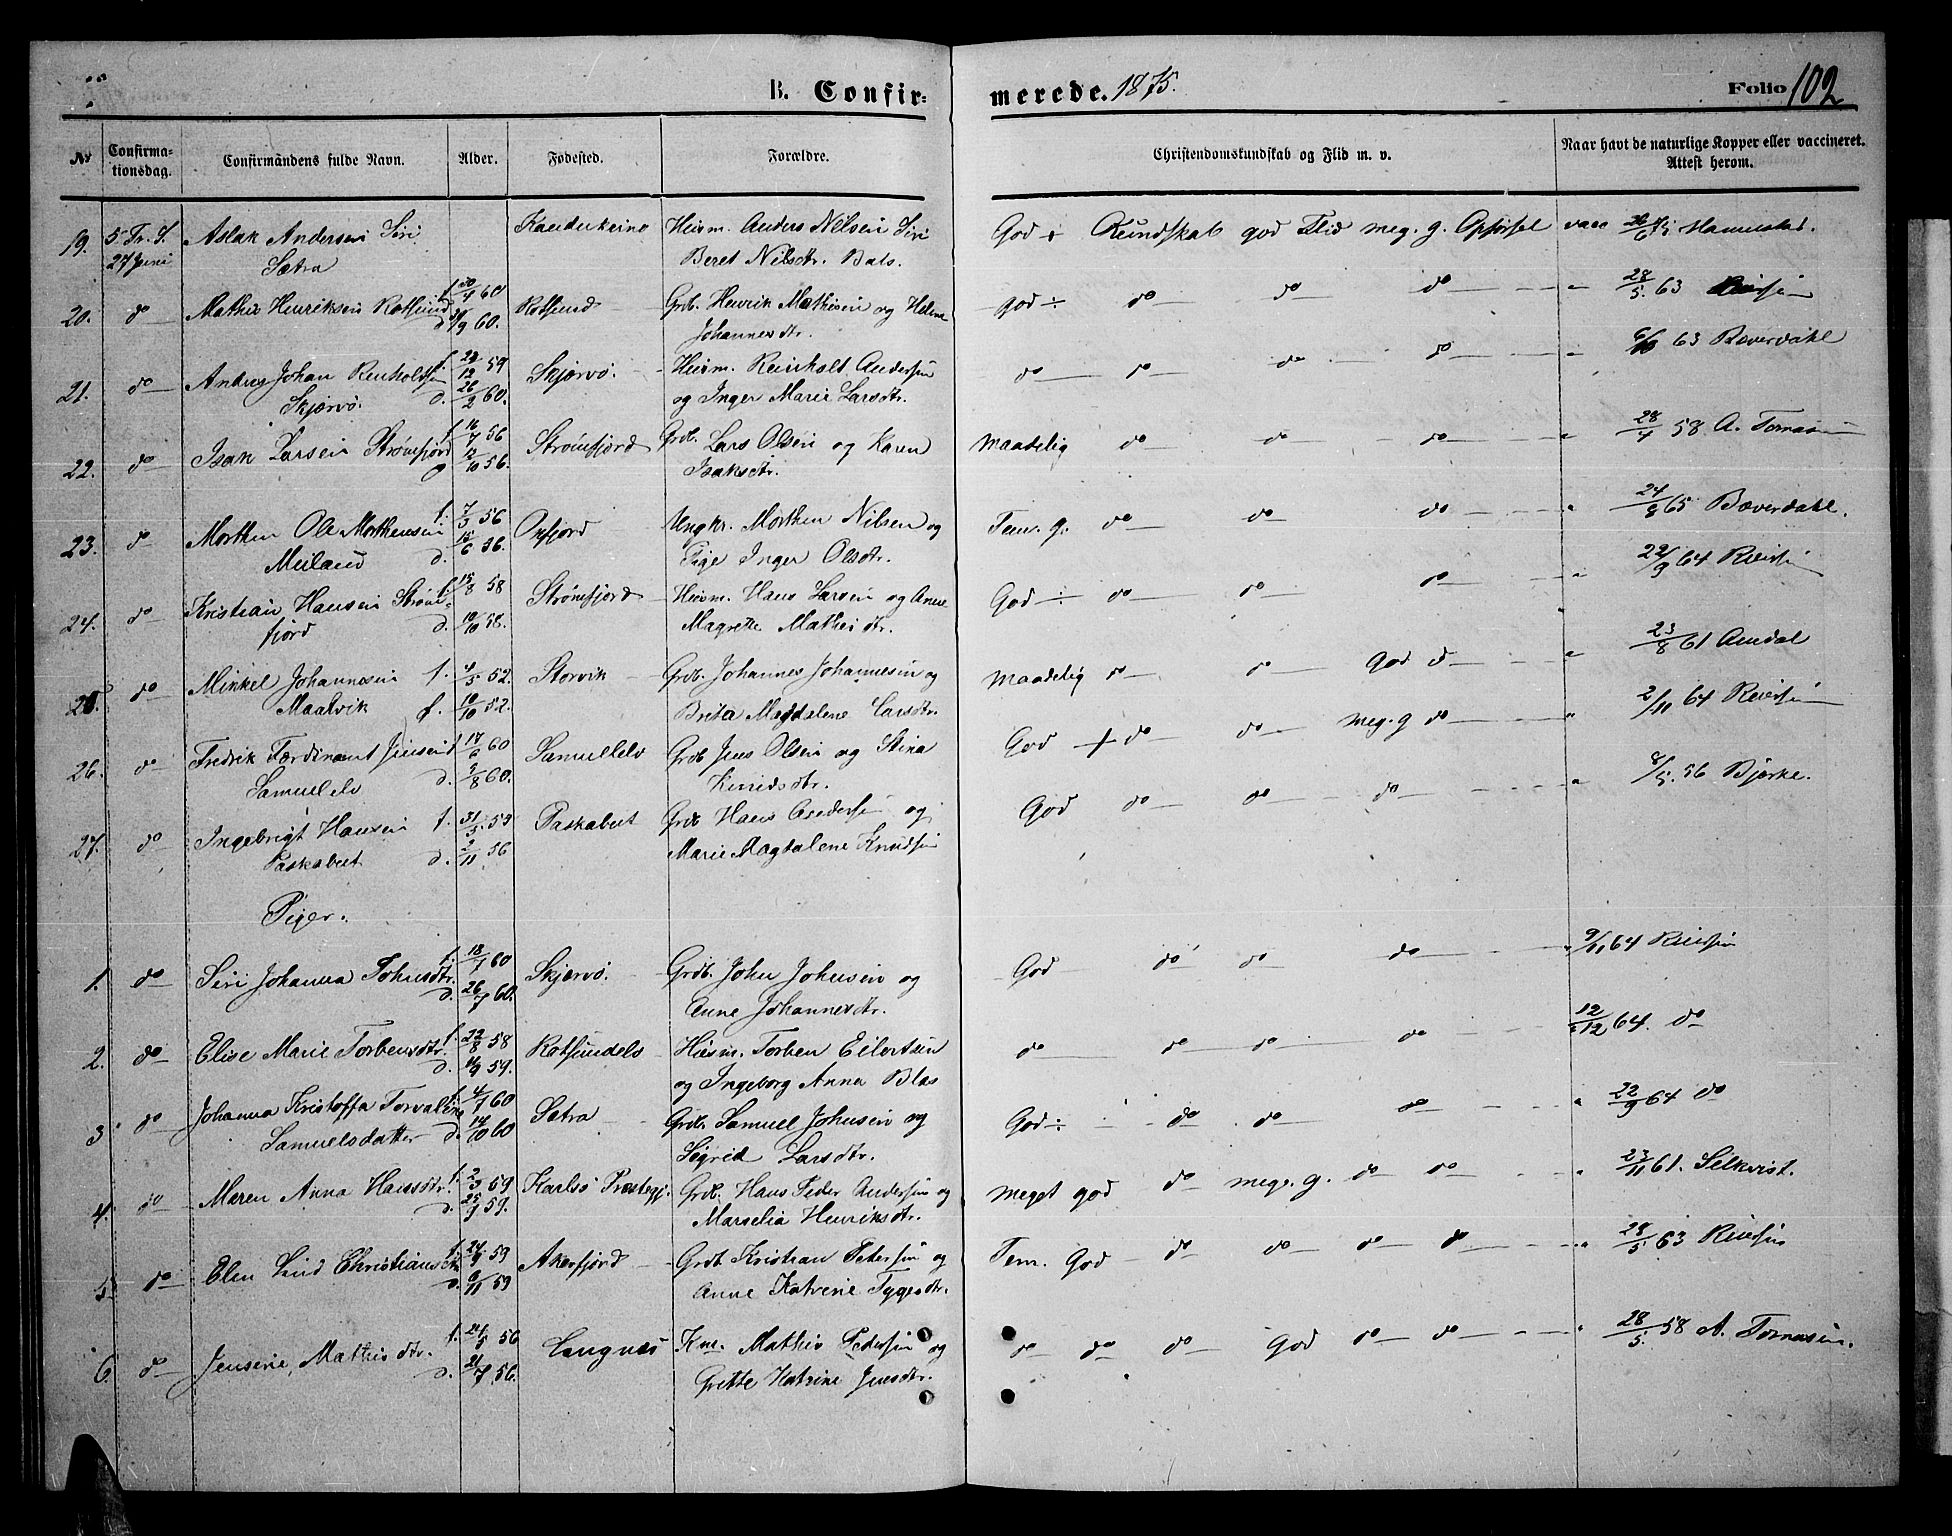 B. Confirmerede. 1875. Folio 102
No Confirmationsdag. Confirmandens fulde Navn. Alder. Fødested. Forældre. Christendomskundskab og Flid m. v. Naar havt de naturlige Kopper eller vaccineret. Attest herom.
19. 5 Tr. S. Aslak Andersen Siri Kaudukeino Heism. Anders Nilsen Siri God ÷ Kundskab god Flid meg. g. Opførsel vacc 75
27 Juni Sætra Beret Nilsdtr. Bals.
20. do Mathis Henriksen Rotsund f. 20/4 60 Rotsund Grdb. Henrik Mathisen og Helene God ÷ do do do " 28/5 63 Reiersen
d. /9 60. Johannesdtr.
21. do Andreas Johan Reinholdsen f. 22/12 59 Skjærvø. Heism. Reinholt Andersen do do do do " 63 Bæverdahl
Skjærvø. d. 26/2 60. og Inger Marie Larsdtr.
22. do Isak Larsen Strømfjord f. 16/7 56 Strømfjord Grdb. Lars Olsen og Karen maadelig do do do " 28/4 58 A. Tomasen
d 12/10 56. Isaksdtr.
23. do Morthen Ole Morthensen f. 7/3 56 Oxfjord Ungkr. Morthen Nilsen og Tem. g. do do do " 24/8 65 Bæverdahl.
Meiland d. 15/6 56. Pige Inger Olsdtr.
24. do Kristian Hansen Strøm- f. 15/8 58 Strømfjord Heism. Hans Larsen og Anne God ÷ do do do " 22/9 64 Reiersen
fjord d. 10/10 58. Magrette Mathisdtr.
25. do Mikkel Johannesen f. 4/5 52. Storvik Grdb. Johannes Johannesen og maadelig do do God do " 23/8 61 Amdal
Maalvik d. 10/10 52. Brita Magdalene Larsdtr.
26. do Fredrik Færdinant Jensen f. 17/6 60 Samuelelv Grdb Jens Olsen og Stina God + do do meg. g do " 2/11 64 Reiersen
Samuelelv d. 5/8 60. Knudsdtr.
27. do Ingebrigt Hansen f. 31/5 55 Paskabut Grdb Hans Andersen og God do do do " 8/5 56 Bjerke.
Paskabut d. 2/11 56 Marie Magdalene Knudsen
Piger.
1. do Siri Johanna Johnsdtr. f. 18/1 60 Skjærvø. Grdb. John Johnsen og God do do do " 9/11 64 Reiersen
d. 26/7 60. Anne Johannesdtr.
2. do Elise Marie Torbensdtr. f. 22/8 58 Rotsundelv Heism. Torben Eilertsen do do do do " 12/12 64. do
d. /9 59. og Ingeborg Anna Blas
3. do Johanna Kristoffa Torvaline f. 4/1 60 Sætra Grdb. Samuel Johnsen og God ÷ do do do " 22/9 64 do
Samuelsdatter d. 14/10 60 Sigrid Larsdtr.
4. do Maren Anna Hansdtr. f. 2/3 59 Karlsø Præstegj. Grdb. Hans Peder Andersen og meget god do mege. g. do do " 23/11 61. Selkvist.
d. 25/9 59. Marselia Henriksdtr.
5. do Elen Lind Christiansdtr f. 24/9 59 Akerfjord Grdb Kristian Pedersen og Tem. God do do do do " 28/5 63 Reiersen
d. 6/11 59 Anne Katrine Tygesdtr.
6. do Jensine Mathisdtr. f. 24/5 56 Langnes Km. Mathis Pedersen og do do do God do do " 28/5 58 A. Tomasen.
d. 21/7 56. Grette Katrine Jensdtr.